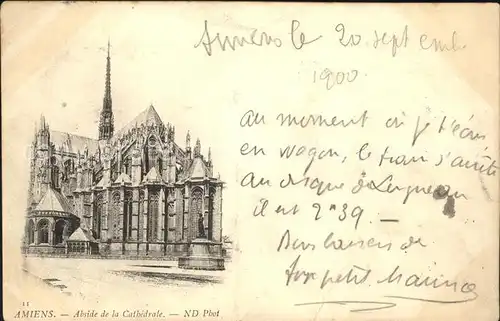 Amiens le 20 septembre
1900
au moment où je t'écris
en wagon, le train s'arrête
au disque de Longueau
il est 2h39. —
Bons baisers de
ton petit
11
AMIENS. — Abside de la Cathédrale. — ND Phot